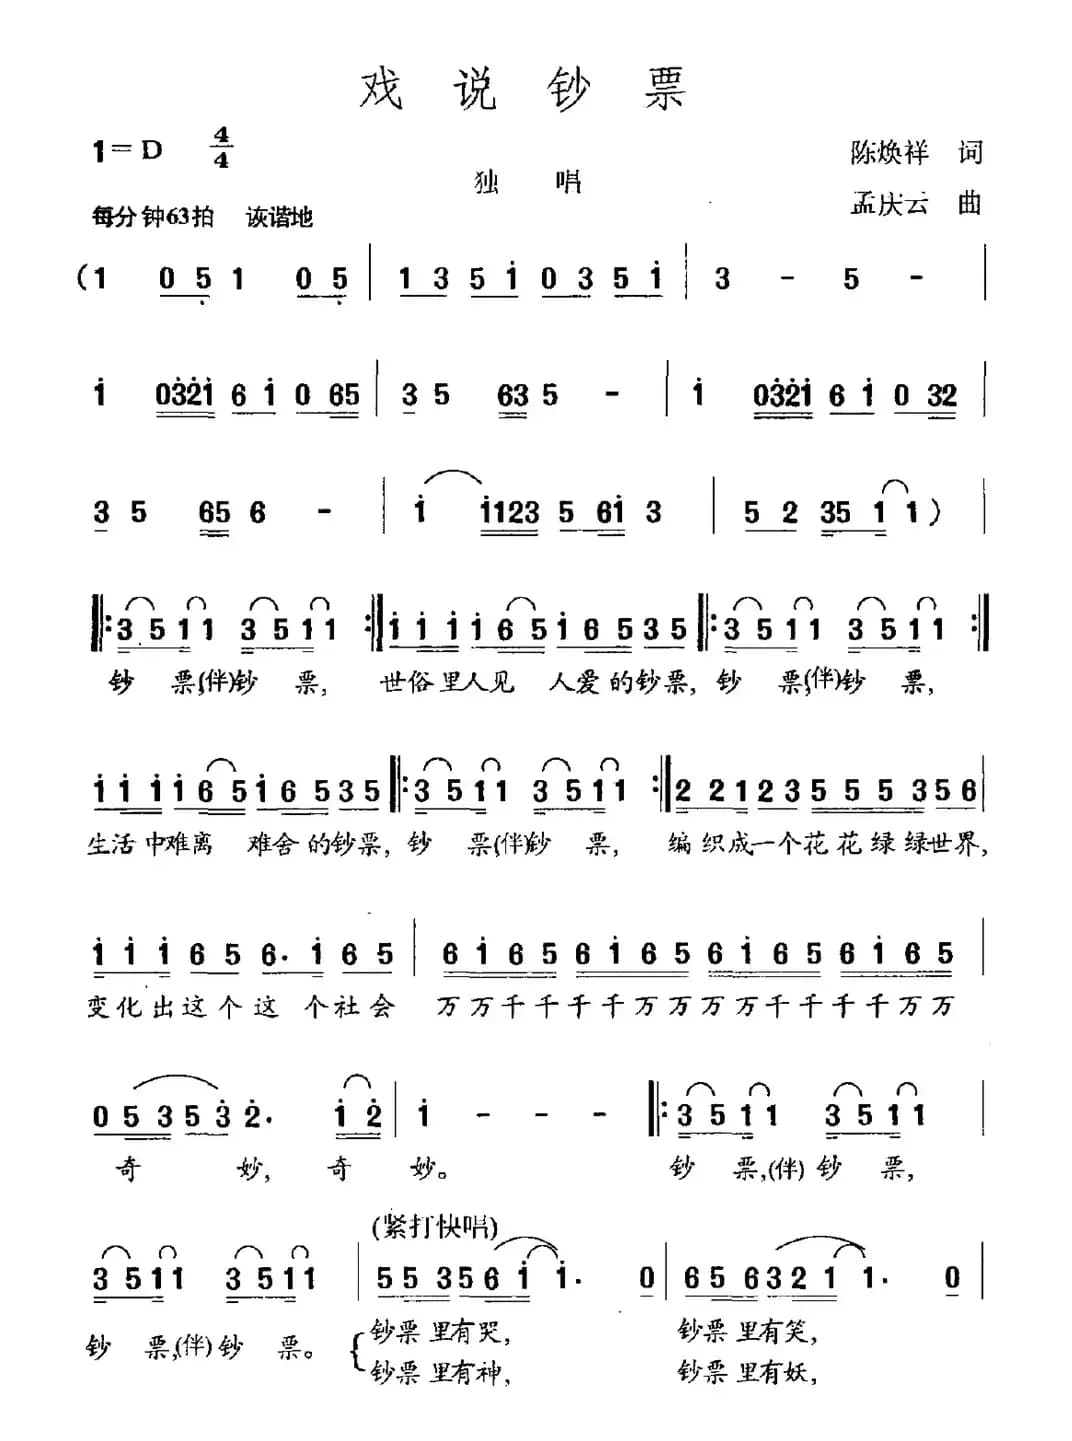 戏 说 钞 票
1=D 4/4
陈焕祥 词
独 唱
孟庆云 曲
每分钟63拍 诙谐地
(1 0 5 1 0 5 | 1 3 5 i 0 3 5 i | 3 - 5 - |
i 0321 6 i 0 65 | 3 5 63 5 - | i 0321 6 i 0 32 |
3 5 65 6 - | i i123 5 6i 3 | 5 2 35 1 1 )
‖: 3 5 1 1 3 5 1 1 :‖ i i i i 6 5 i 6 5 3 5 ‖: 3 5 1 1 3 5 1 1 :‖
钞 票,(伴)钞 票, 世俗里人见 人爱的钞票, 钞 票,(伴)钞 票,
i i i i 6 5 i 6 5 3 5 ‖: 3 5 1 1 3 5 1 1 :‖ 2 2 1 2 3 5 5 5 3 5 6 |
生活中难离 难舍的钞票, 钞 票(伴)钞 票, 编织成一个花花绿绿世界,
i i i 6 5 6. i 6 5 | 6 i 6 5 6 i 6 5 6 i 6 5 6 i 6 5 |
变化出这个这 个社会 万万千千千千万万万万千千千千万万
0 5 3 5 3 2. i 2 | i - - - ‖: 3 5 1 1 3 5 1 1 |
奇 妙, 奇 妙。 钞 票,(伴)钞 票,
(紧打快唱)
3 5 1 1 3 5 1 1 | 5 5 3 5 6 i i. 0 | 6 5 6 3 2 1 1. 0 |
钞 票,(伴)钞 票。 { 钞票里有哭, 钞票里有笑,
钞票里有神, 钞票里有妖,